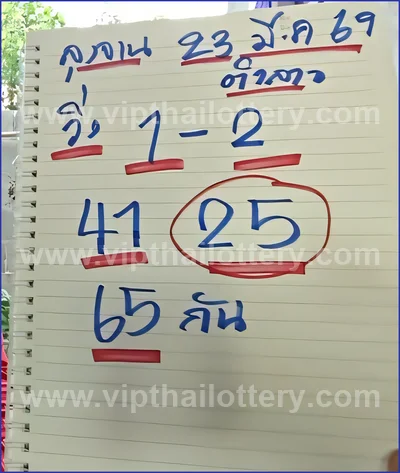 ลุงจาน 23 มี.ค 69
ตำลาว
www.vipthailottery.com
วิ่ง 1 - 2
41 25
www.vipthailottery.com
65 กัน
www.vipthailottery.com